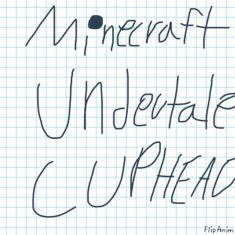 Minecraft
Undertale
CUPHEAD
FlipAnim